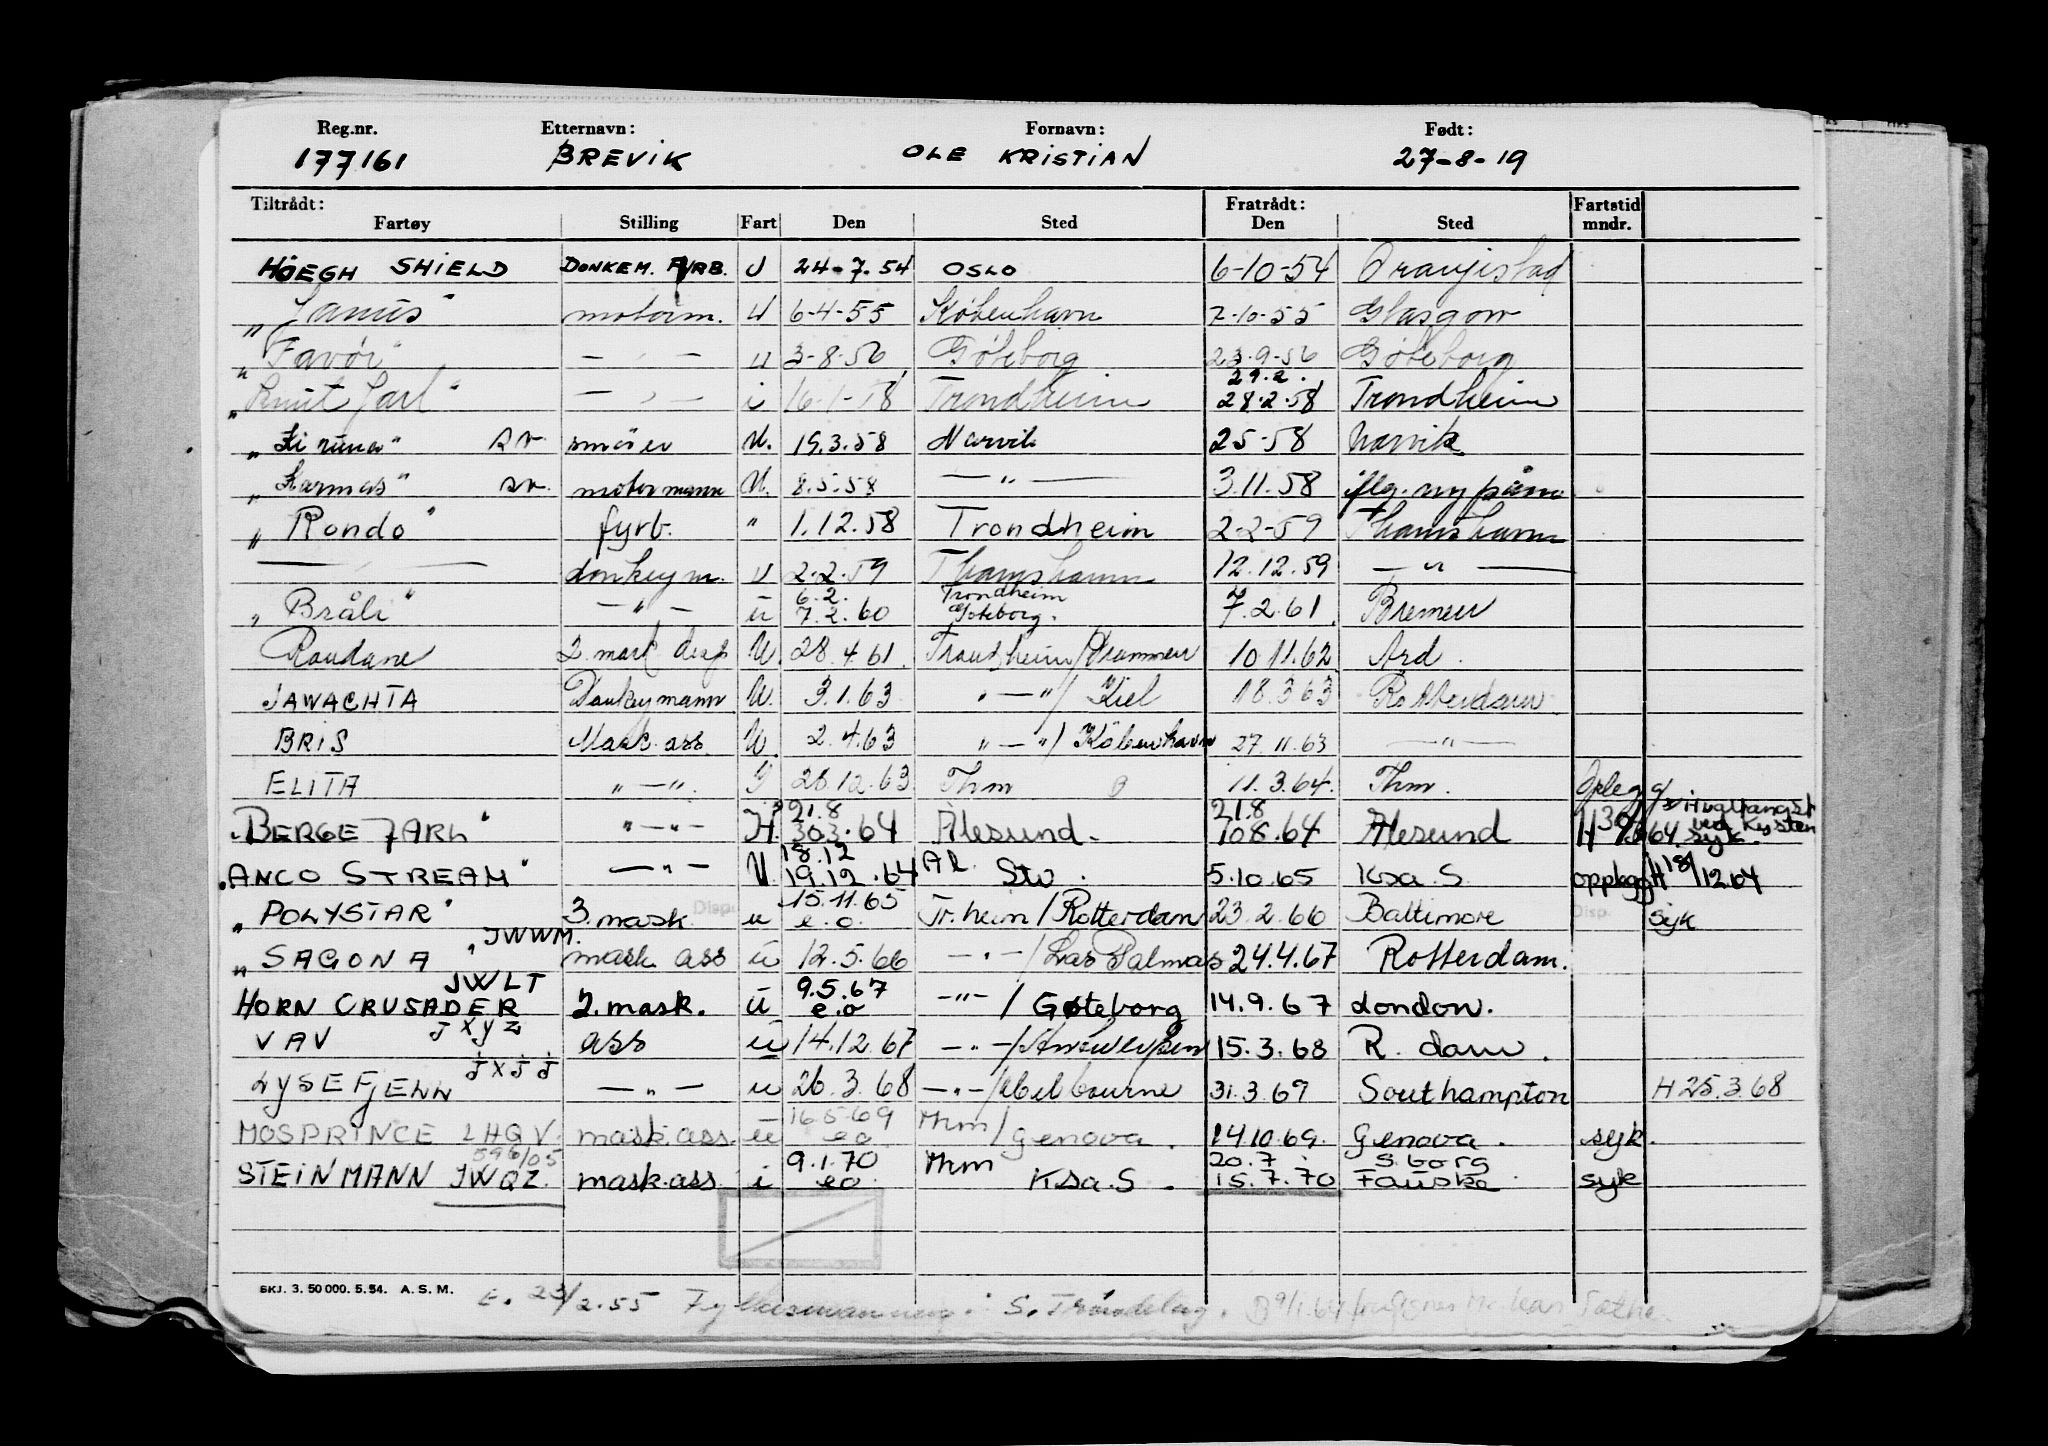 Reg.nr. Etternavn: Fornavn: Født:
177161 BREVIK OLE KRISTIAN 27-8-19
Tiltrådt: Fratrådt: Fartstid
Fartøy Stilling Fart Den Sted Den Sted mndr.
HÖEGH SHIELD DONKEM. U 24-7-54 OSLO 6-10-54 Oranjestad
"Janus" motorm. U 6-4-55 København 7-10-55 Glasgow
"Favör" — " — u 3-8-56 Göteborg 23.9-56 Göteborg
29.2.
"Knut Jarl" — " — i Trondheim 28.2.58 Trondheim
"Kiruna" sv. smörer U. 19.3.58 Narvik 25-58 Narvik
"Karmas" sv. motormann U. 8.5.58 — " — 3.11.58 iflg. ny påm.
"Rondo" fyrb. " 1.12.58 Trondheim 2-2-59 Thamshamn
— " — donkeym. U 2-2-59 Thamshamn 12.12.59 — " —
6.2. Trondheim
"Bråli" — " — u 7.2.60 Göteborg. 7.2.61. Bremen
Rondane 2. mask disp U. 28.4.61. Trondheim/Drammen 10.11.62 Ard.
JAWACHTA Donkeymann U. 3.1.63 " — "/ Kiel 18.3.63 Rotterdam
BRIS Mask. ass. U. 2.4.63 " — "/ København 27.11.63 — " —
ELITA " — ". 28.12.63 Thm 11.3.64. Thm.
21.8 21.8
"BERGE JARL" " — " — H. 303.64 Ålesund. 108.64 Ålesund syk.
18.12
"ANCO STREAM" — " — U. 19.12.64 Al. Sto. 5.10.65 Ksa. S. opplegg H 18/12 64
15.11.65
"POLYSTAR" 3. mask. Disp. u e.o. Tr.heim/Rotterdam 23.2.66 Baltimore Disp. syk
JWWM.
"SAGONA" mask. ass u 12.5.66 — " —/Las Palmas 24.4.67 Rotterdam.
JWLT 9.5.67
HORN CRUSADER 2. mask. u e.o — " — / Gøteborg 14.9.67 London.
VAV JXYZ ass u 14.12.67 — " —/Antwerpen 15.3.68 R. dam.
LYSEFJELL JXJJ — " — u 26.3.68 — " —/Melbourne 31.3.69 Southampton H 25.3.68
16.5.69
MOSPRINCE LHQV. mask.ass. u e.o Thm/Genova. 14.10.69. Genova. syk.
596/05 9.1.70 20.7. S.borg
STEINMANN JWQZ. mask.ass i e.o. Thm Ksa. S. 15.7.70 Fauske syk
SKJ. 3. 50 000. 5. 54. A. S. M.
E. 23/2.55 Fylkesmannen i S. Trøndelag.